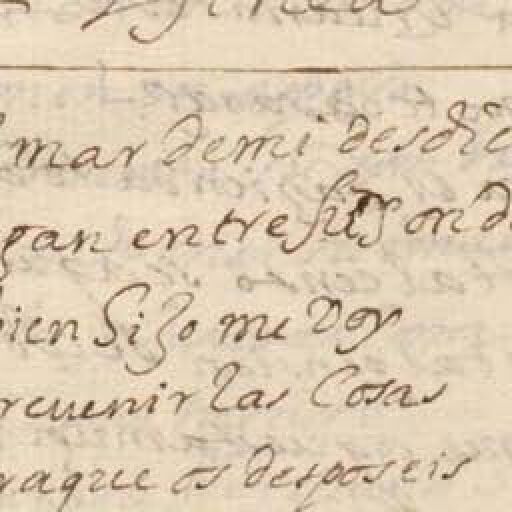 mar de mi desdic
gan entre sus onda
bien si Yo me voy
revenir las Cosas
raque os desposeis